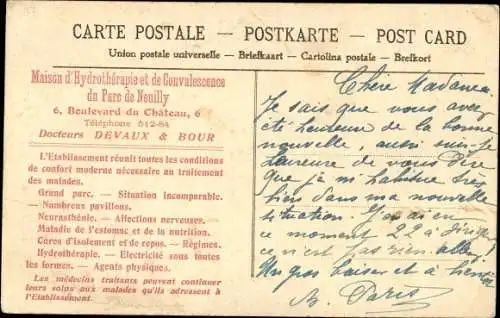 CARTE POSTALE – POSTKARTE – POST CARD
Union postale universelle – Briefkaart – Cartolina postale – Brefkort
Maison d'Hydrothérapie et de Convalescence
du Parc de Neuilly
6, Boulevard du Château, 6
Téléphone 512-84
Docteurs DEVAUX & BOUR
L'Etablissement réunit toutes les conditions
de confort moderne nécessaire au traitement
des malades.
Grand parc. — Situation incomparable.
— Nombreux pavillons.
Neurasthénie. — Affections nerveuses.
Maladie de l'estomac et de la nutrition.
Cures d'isolement et de repos. — Régimes.
Hydrothérapie. — Electricité sous toutes
les formes. — Agents physiques.
Les médecins traitants peuvent continuer
leurs soins aux malades qu'ils adressent à
l'Etablissement.
Chère Madame
Je sais que vous avez
été heureuse de la bonne
nouvelle, aussi suis-je
heureuse de vous dire
que je m'habitue très
bien dans ma nouvelle
situation. J'ai en
ce moment 22 à diriger
ce n'est pas rien. allez
Un gros baiser et à
B. Paris